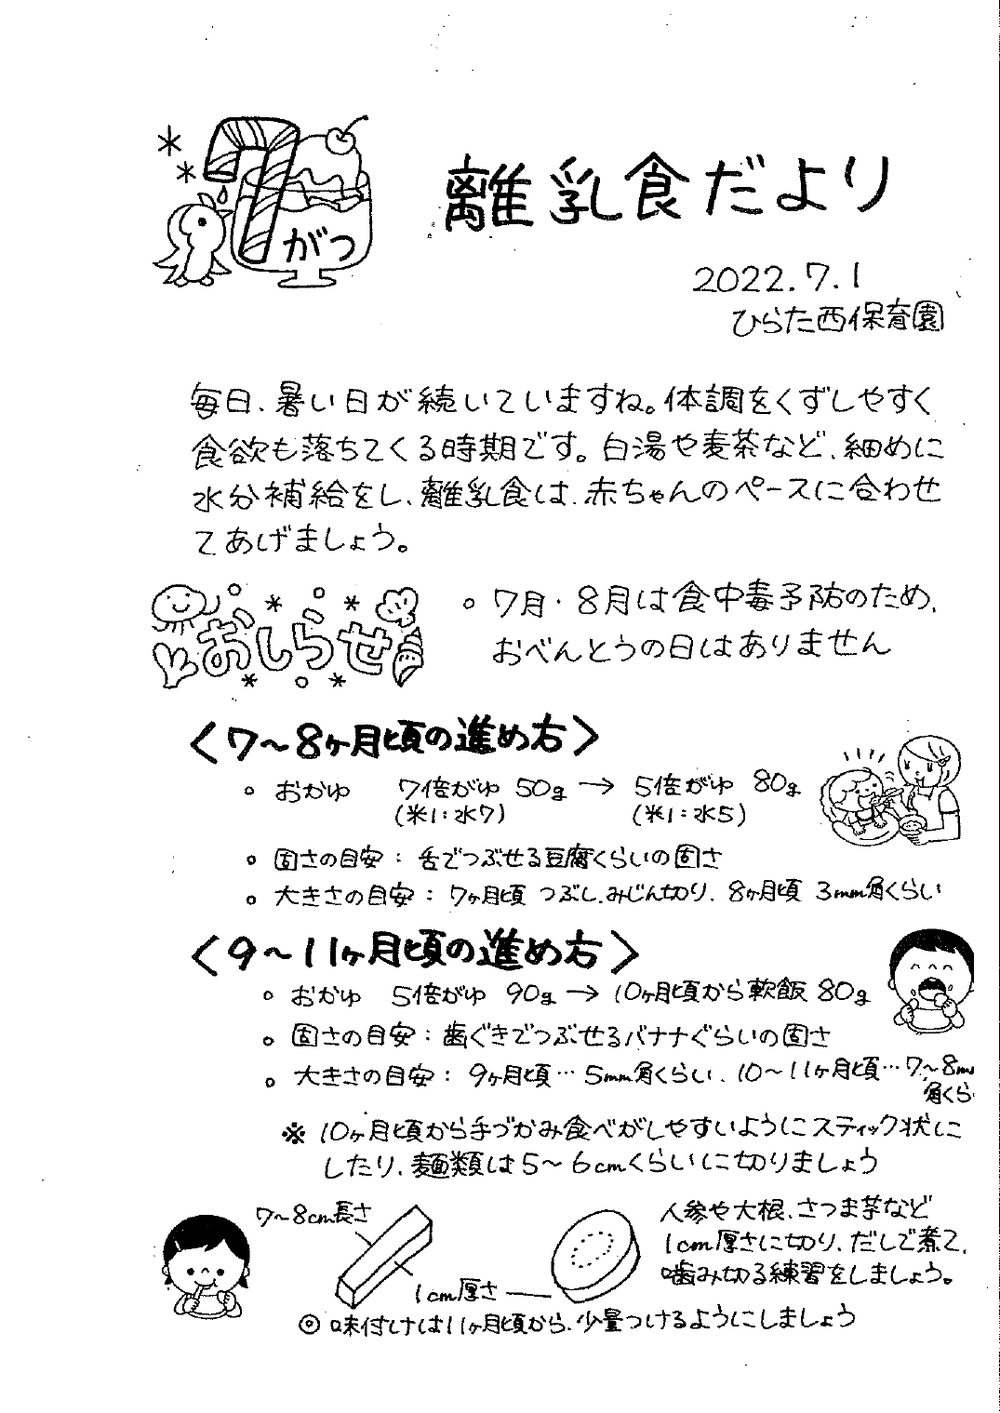 7がつ
離乳食だより
2022.7.1
ひらた西保育園
毎日、暑い日が続いていますね。体調をくずしやすく
食欲も落ちてくる時期です。白湯や麦茶など、細めに
水分補給をし、離乳食は、赤ちゃんのペースに合わせ
てあげましょう。
おしらせ
○ 7月・8月は食中毒予防のため、
おべんとうの日はありません
〈7～8ヶ月頃の進め方〉
○ おかゆ 7倍がゆ 50g → 5倍がゆ 80g
(米1:水7) (米1:水5)
○ 固さの目安：舌でつぶせる豆腐くらいの固さ
○ 大きさの目安：7ヶ月頃 つぶし、みじん切り、8ヶ月頃 3mm角くらい
〈9～11ヶ月頃の進め方〉
○ おかゆ 5倍がゆ 90g → 10ヶ月頃から軟飯 80g
○ 固さの目安：歯ぐきでつぶせるバナナぐらいの固さ
○ 大きさの目安：9ヶ月頃…5mm角くらい、10～11ヶ月頃…7～8mm
角くら
※ 10ヶ月頃から手づかみ食べがしやすいようにスティック状に
したり、麺類は5～6cmくらいに切りましょう
7～8cm長さ
1cm厚さ
人参や大根、さつま芋など
1cm厚さに切り、だしで煮て、
噛み切る練習をしましょう。
◎ 味付けは11ヶ月頃から、少量つけるようにしましょう